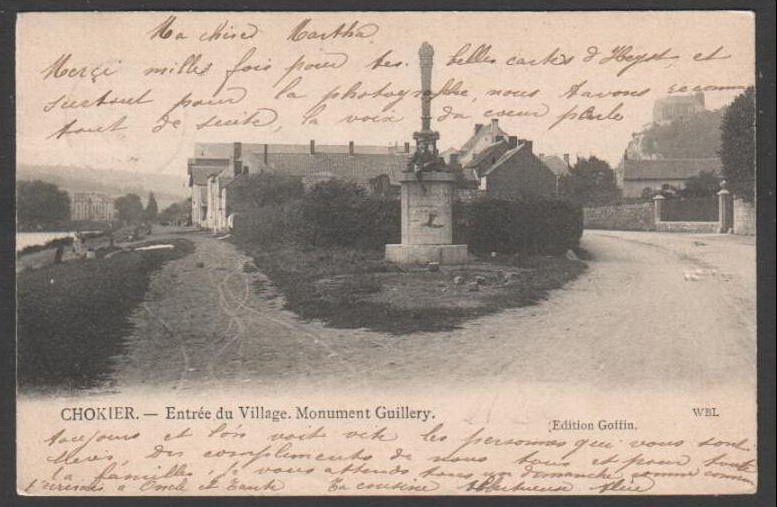 Ma chère Martha
Merçi milles fois pour tes belles cartes d'Heyst et
surtout pour la photographe, nous l'avons reconnu
tout de suite, la voix du coeur parle
CHOKIER. — Entrée du Village. Monument Guillery.
Edition Goffin.
WBL
toujours et l'on voit vite les personnes qui vous sont
chères, des compliments de nous tous et pour toute
la famille, je vous attends tous un dimanche comme
à Oncle et Tante Ta cousine